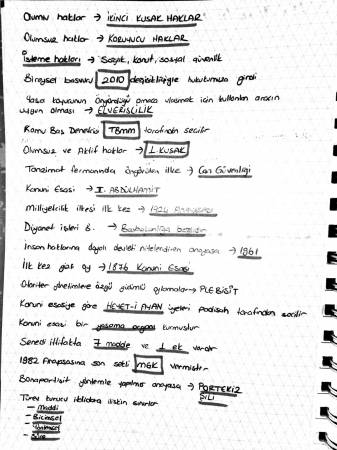 Olumlu haklar → İKİNCİ KUŞAK HAKLAR
Olumsuz haklar → KORUYUCU HAKLAR
İsteme hakları → Sağlık, konut, sosyal güvenlik
Bireysel başvuru 2010 değişikliğiyle hukukumuza girdi
Yasa koyucunun öngördüğü amaca ulaşmak için kullanılan aracın
uygun olması → ELVERİŞLİLİK
Kamu Baş Denetçisi TBMM tarafından seçilir
Olumsuz ve Aktif haklar → 1. KUŞAK
Tanzimat fermanında öngörülen ilke → Can Güvenliği
Kanuni Esasi → II. ABDÜLHAMİT
Milliyetçilik ilkesi ilk kez → 1924 Anayasası
Diyanet işleri B. → Başbakanlığa bağlıdır
İnsan haklarına dayalı devleti nitelendiren anayasa → 1961
İlk kez → 1876 Kanuni Esasi
Otoriter yönetimlere özgü → PLEBİSİT
Kanuni esasiye göre HEYET-İ AYAN üyeleri padişah tarafından seçilir
Kanuni esasi bir yasama organı kurmuştur
Senedi ittifakta 7 madde ve 1 ek vardır
1982 Anayasasına son şekli MGK vermiştir
Bonapartist yöntemle yapılmış anayasa → PORTEKİZ
ŞİLİ
Türev kurucu iktidara ilişkin sınırlar
- Maddi
- Biçimsel
- Süre